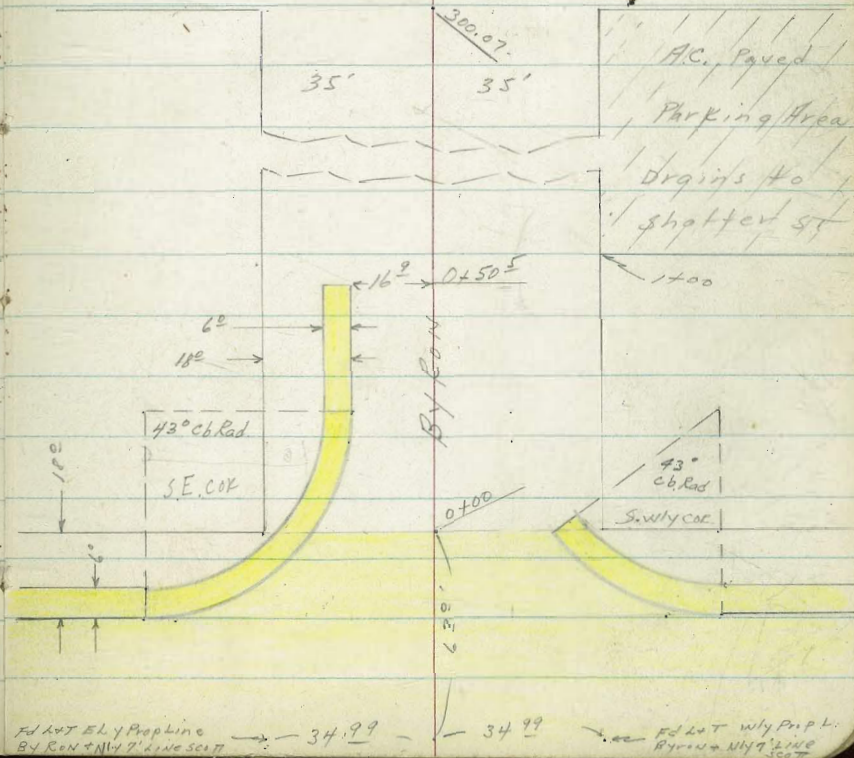 300.07
35' 35'
A.C. Paved
Parking Area
Drains to
Shafter ST
1+00
16⁹ 0+50⁵
6⁰
18⁰
BYRON
43⁰ Cb Rad
S.E. COR
43⁰
Cb. Rad
S.Wly COR.
18⁰
6⁰
0+00
Fd L+T ELY Prop Line
BYRON + Nly 7' LINE SCOTT
34.99 34.99
Fd L+T Wly Prop L.
Byron + Nly 7' LINE
SCOTT